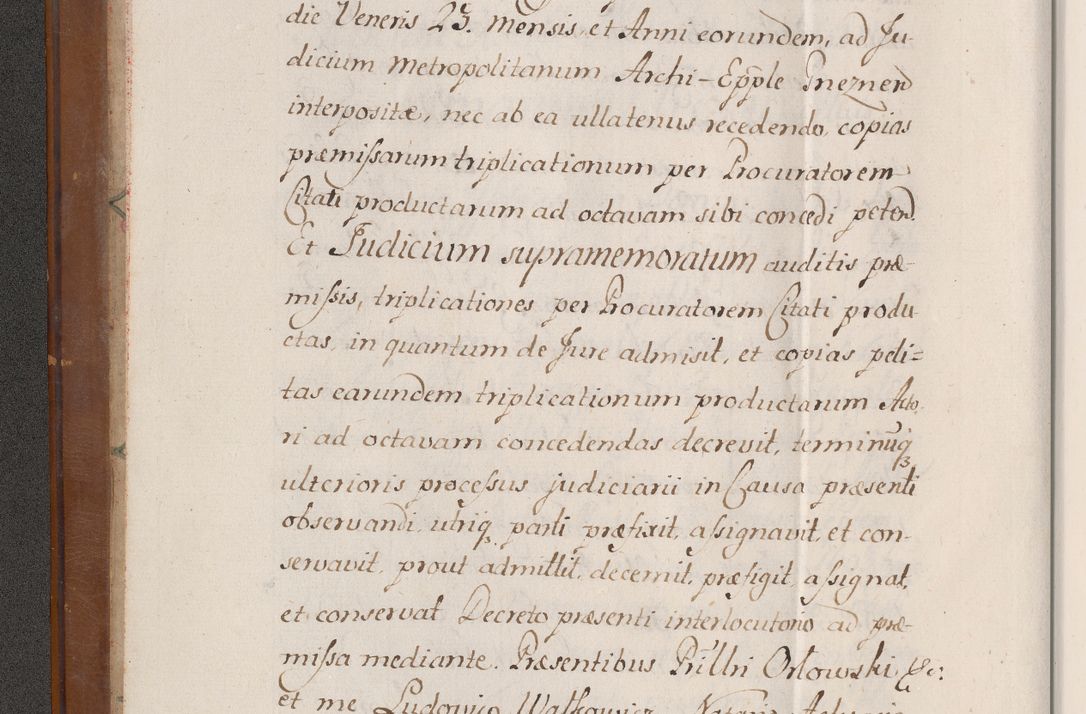 die Veneris 23. mensis, et Anni eorundem, ad Ju-
dicium Metropolitanum Archi-Epple Gneznen
interpositæ, nec ab ea ullatenus recedendo, copias
præmissarum triplicationum per Procuratorem
Citati productarum ad octavam sibi concedi peten.
Et Judicium supramemoratum auditis præ-
missis, triplicationes per Procuratorem Citati produ-
ctas, in quantum de Jure admisit, et copias peti=
tas earundem triplicationum productarum Acto-
ri ad octavam concedendas decrevit, terminuq₃
ulterioris processus judiciarii in Causa præsenti
observandi, utriq₃ parti præfixit, assignavit, et con-
servavit, prout admittit, decernit, præfigit, assignat,
et conservat Decreto præsenti interlocutorio ad præ-
missa mediante. Præsentibus Orłowski, &c:
et me Ludovico Walkowicz